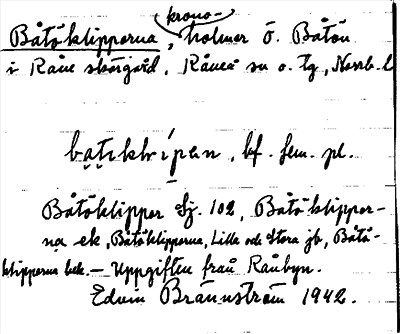 krono-
Båtöklipporna, holmar ö. Båtön
i Råne skärgård, Råneå sn o. tg, Norrb. l
båt klipporna, bf. fem. pl.
Båtöklippor Sj. 102, Båtöklippor-
na ek, Båtöklipporna, Lilla och Stora jb, Båtö-
klipporna bek. — Uppgiften från Rånbyn.
Edvin Brännström 1942.